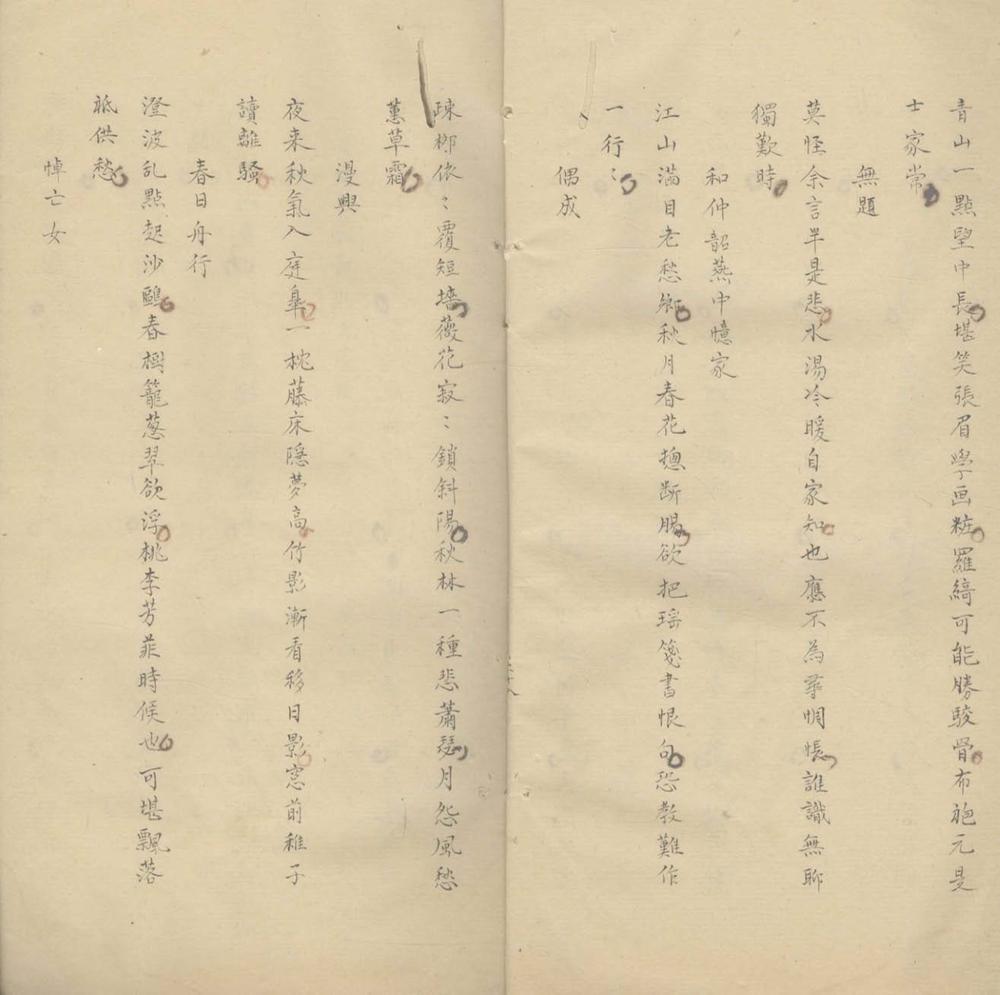 青山一點望中長堪笑張眉學画粧羅綺可能勝駿骨布袍元是
士家常
無題
莫怪余言半是悲水湯冷暖自家知也應不為尋惆悵誰識無聊
獨歎時
和仲韶燕中憶家
江山滿目老愁鄉秋月春花摠断腸欲把瑶箋書恨句恐教難作
一行〻
偶成
疎柳依〻覆短墻薇花寂〻鎖斜陽秋林一種悲蕭瑟月怨風愁
蕙草霜
漫興
夜来秋氣入庭皐一枕藤床隱夢高竹影漸看移日影窓前稚子
讀離騷
春日舟行
澄波乱點起沙鷗春樹籠葱翠欲浮桃李芳菲時候也可堪飄落
祗供愁
悼亡女